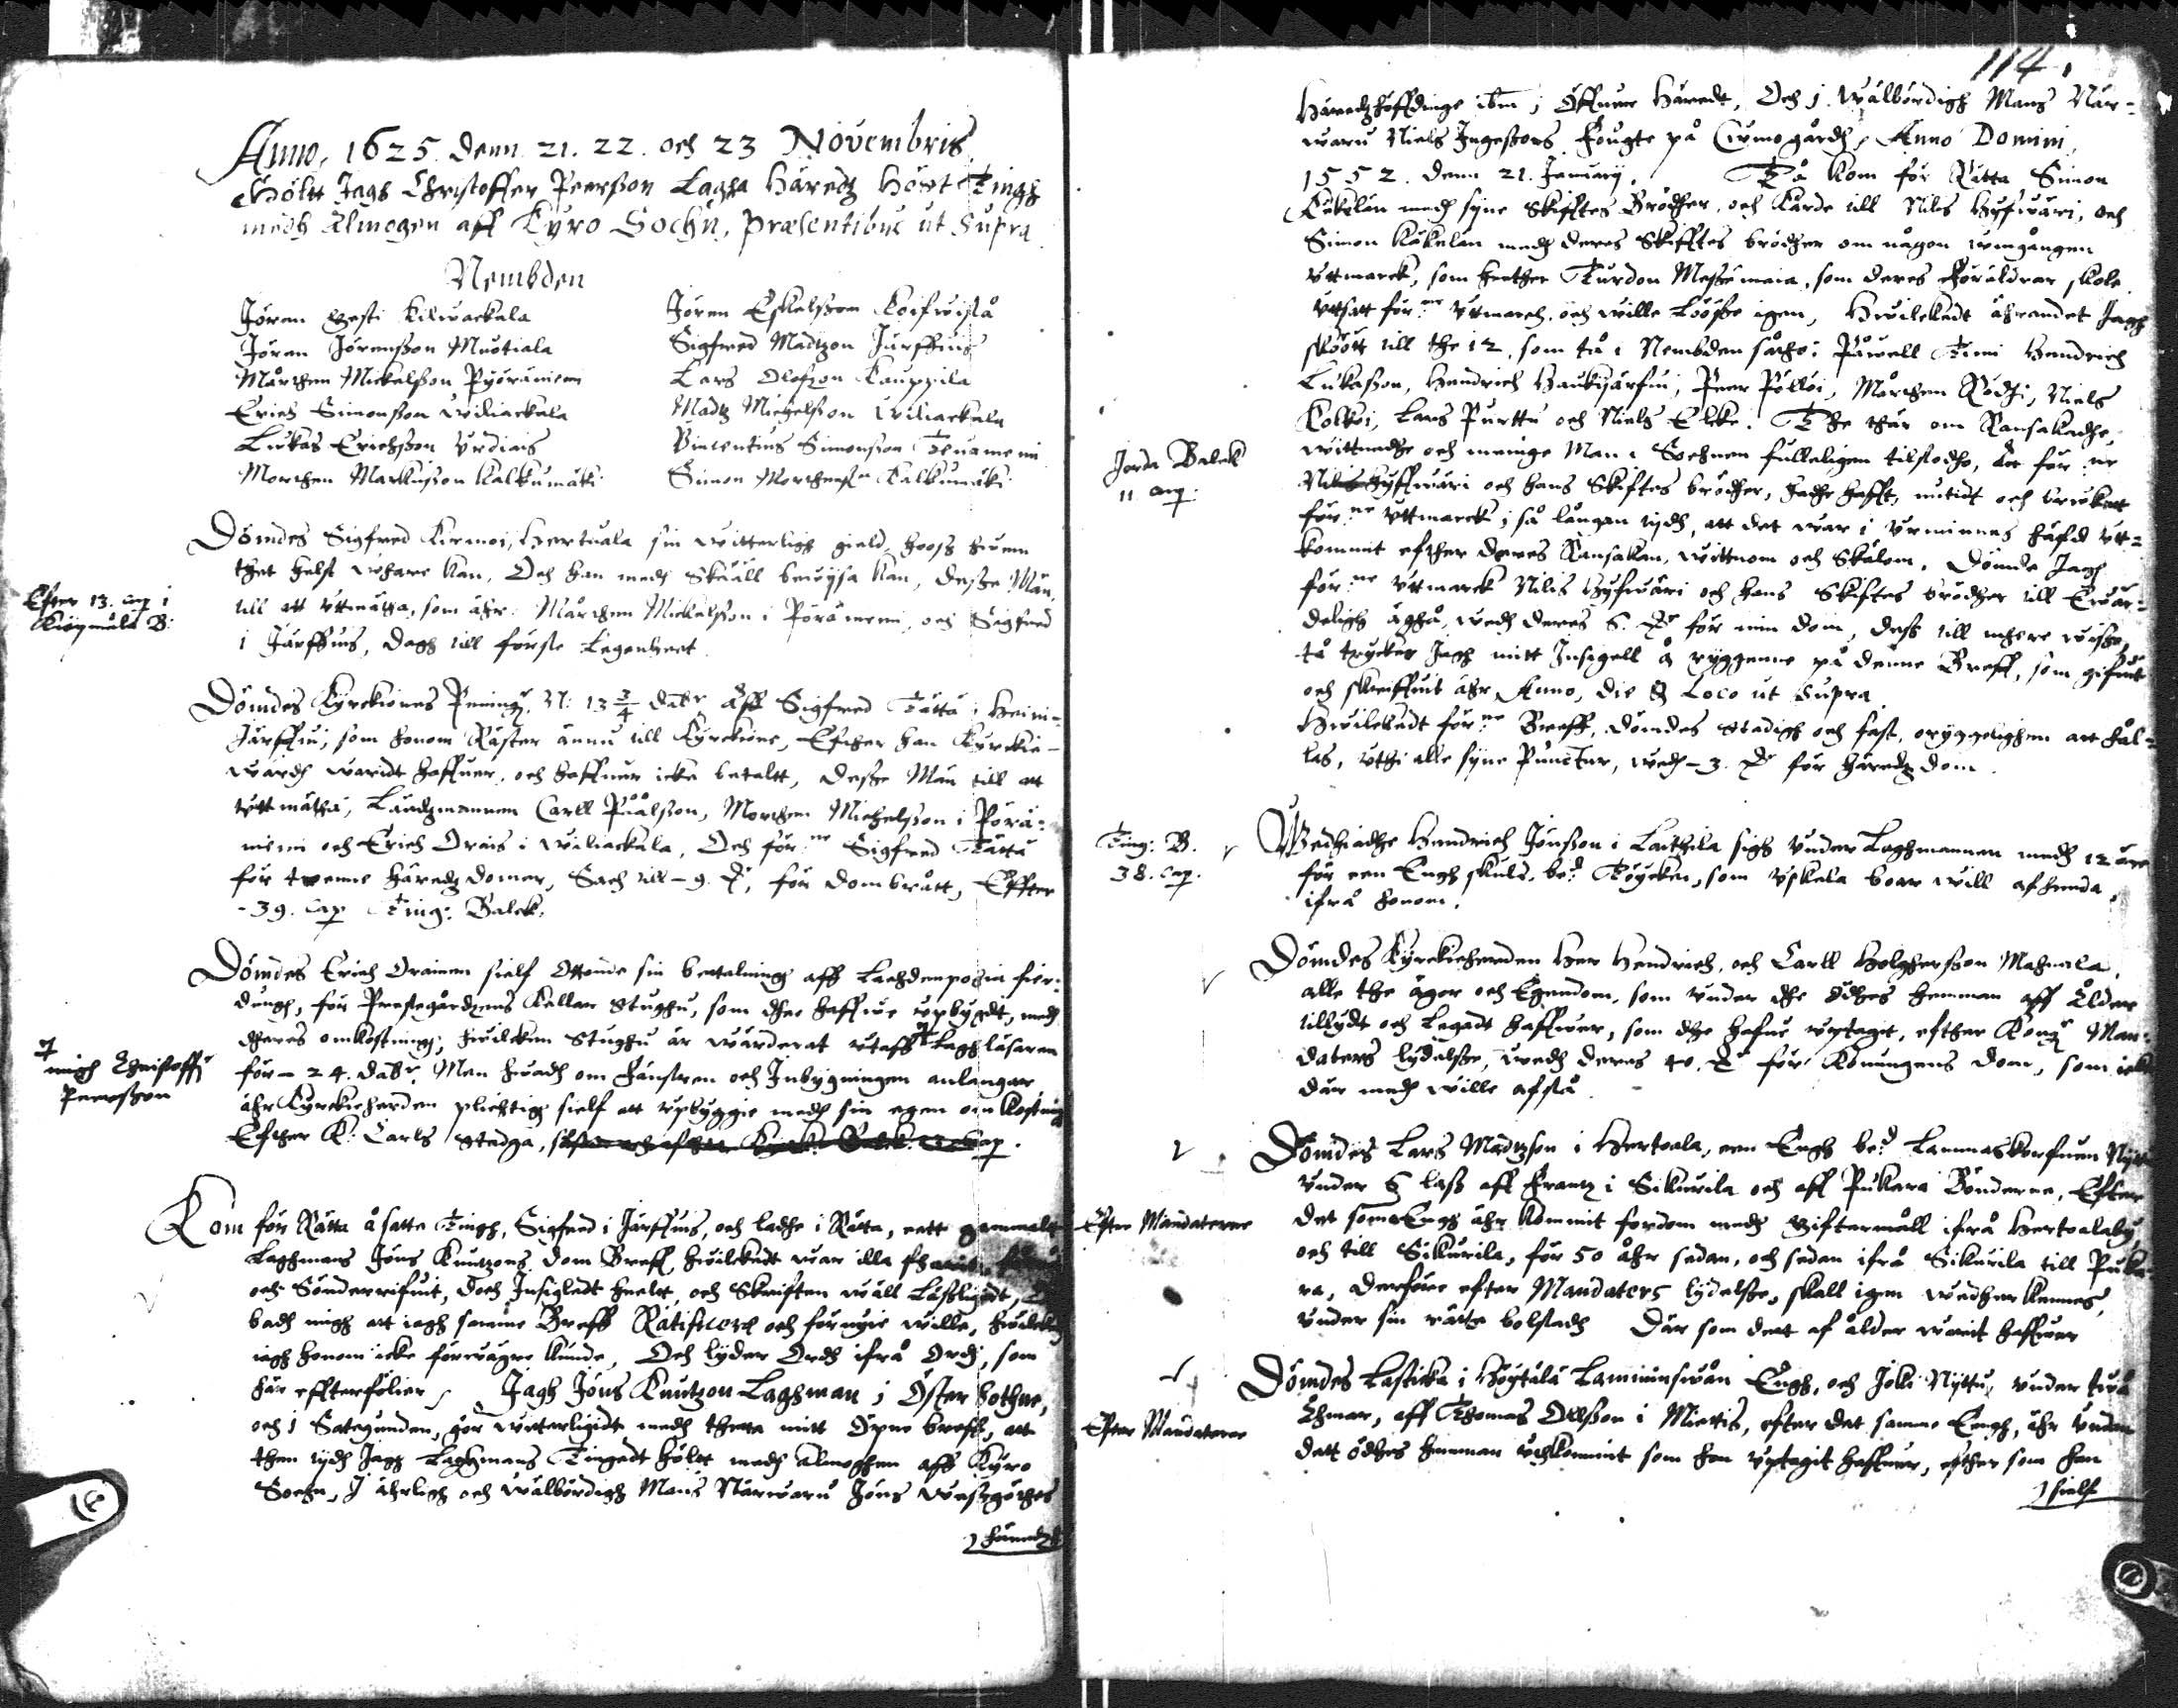 Anno, 1625. denn. 21. 22. och 23 Novembris,
Höltt Jagh Christoffer Peersson Lagha Häredz Höst Tingh
medh Almogen aff Kyro Sochn, Præsentibus ut Supra
Nembden
Jören Gesti Kilwackala
Jören Jörensson Muotiala
Mårthen Mickelsson Pyöräniemi
Erich Simonsson Williackala
Lukas Erichsson Urdiais
Morthen Markusson Kalkumäki
Jören Eskelsson Koifwistå
Sigfred Madtzon Järffwis
Lars Olofzon Kauppila
Madtz Michelsson Williackala
Vincentius Simonsson
Simon Morthenss Kalkumäki
Dömdes Sigfred Kirmoi, Hertuala sin witterligh gield, hooss huem
thet helst whare kan, Och han medh Skääll bewysa kan, desse Män,
till att uttmätta, som ähr: Mårthen Mickelsson i Pöränemi, och Sigfred
i Järffwis, dagh till förste Legenheet.
Efter 13. cap i
Kiöpmåla B:
Dömdes Kyrckiones Peningz N: 13 3/4 dalr Aff Sigfred Tättä i Heini=
Järffwi, som honom Räster ännu till Kyrckione, Efther han Kyrckie=
wärdh waridt haffuer, och haffuer icke betaltt, desse Män till att
uttmätta, Ländzmannen Carll Påålsson, Morthen Michelsson i Pörä=
niemi och Erich Orais i wiliackala, Och för:ne Sigfred Tättä
för twenne häredz domer, Sach till - 9. , för dombrått, Effter
- 39. Cap Ting: Balck.
Dömdes Erich Orainen sielf Ottonde sin bettalningh aff Lachdenpohia fier=
dungh, för Prestegårdzens Kellare Stughu, som the haffwe upbygdt, medh
theres omkostningh, huilcken Stughu är wärderat utaff Laghläsaren
för - 24. dalr. Men huadh om Fänstren och Inbygningen anlangar,
ähr Kyrckieherden plichtigh sielf att upbyggie medh sin egen omkostnig
Efther K: Carls stadga,
migh Christoffer
Peersson
Kom för Rätta å satte Tingh, Sigfred i Järffwis, och ladhe i Rätta, ett gammalt
Laghmans Jöns Knutzons dom Breff, huilckedt war illa
och Sönderrifuit, doch Insigledt heelt, och Skrifften wäll Läseligedt,
badh migh att iagh samme Breff Ratificera och förnyie wille, huilckedt
iagh honom icke förwägre kunde, Och lyder Ordh ifrå Ordh, som
här effterfölier / Jagh Jöns Knutzon Laghman i Öster bothne,
och i Satagunden, gör witterligidt medh thetta mitt Öpne breff, att
then tijdh Jagh Laghmans Tingedt höltt medh almoghen aff Kyro
Sochn, I ährligh och wälbördigh Mans Närwaru Jöns wesgöthes
häredz
114
Häredzhöffdinge ibm i Öffuere Häredt, Och i wälbördigh Mans När=
waru Niels Ingessons Fougte på Cumogårdh, Anno Domini,
1552. denn 21. January. Tå kom för Rätta Simon
Käkelän medh syne Skifftes Brödher, och kärde till Nilss Hyfwäri, och
Simon Käkelän medh deres Skifftes brödher om någon
uttmarck, som heether Turdon Messämaia, som deres Föräldrar skole
uttsatt för:ne uttmarch. och wille Löösse igen, Huilckedt ährandet Jagh
skööt till the 12. som tå i Nembden såtho: Påwell Timi Hendrich
Lukasson, Hendrich Haukijärfui, Peer Pölloi, Mårthen Rödzi, Niels
Kolkoi, Lars Purttu och Niels Elke. The thär om Ransakadhe,
wittnadhe och menige Man i Sochnen fulleligen tilstodhe, att för:ne
Nilss Hyffwäri och hans Skifftes brödher, hadhe hafft, nutidt och bruket
för:ne uttmarck i så långan tijdh, att det war i urminnes häfd utt=
kommit efther deres Ransakan, wittnom och Skälom. Dömde Jagh
för:ne uttmarck Nilss Hyfwäri och hans Skifftes brödher till Ewär=
deligh ägho, wedh deres 6. för min dom, dess till mhere wisso,
tå trycker Jagh mitt Insigell å ryggenne på denne Breff, som gifuit
och skriffuit ähr Anno, die & Loco ut Supra
Huilckedt för:ne Breff, dömdes stadigh och fast, oryggelighen att hål=
les, uthi alle syne Puncter, wedh - 3. för häredz dom.
Jorda Balck
11 cap.
Wedhiadhe Hendrich Jönsson i Laithila sigh under Laghmannen medh 12 öre
för een Engh skuld, be:d Töycken, som Upkala boar will afhenda
ifrå honom.
Ting: B.
38. Cap.
Dömdes Kyrckieherden Her Hendrich, och Carll Holghersson Mahnala,
alle the ägor och Egendom, som under the ödhes hemman aff Ålder
tillydt och Legadt haffuer, som the hafue uptagit, efther Kongz Man=
daters lydelsse, wedh deres 40. för Konungens dom, som icke
där medh wille afstå
Dömdes Lars Madtzson i Hertoala, een Engh be:d Lammaskorfuen
under 6 lass aff Frantz i Sikurila och aff Pukara Bönderne, Efter
det somma Engh ähr kommit fordom medh gifftermåll ifrå Hertoalaby,
och till Sikurila, för 50 åhr sedan, och sedan ifrå Sikurila till Puka=
ra, derföre efter Mandaters lydelsse, skall igen wedherkennes
under sin rätte bolstadh Där som dett af ålder warit haffuer
Efter Mandaterne
Dömdes Lastika i Höytälä Lamminsiwån Engh, och Jöki Nyttu, under twå
Thomas Ollsson i Miettis, efter det samme Engh, ähr under
dett ödhes hemman utkommit som han uptagit haffuer, efther som han
sielf
Efter Mandaterne